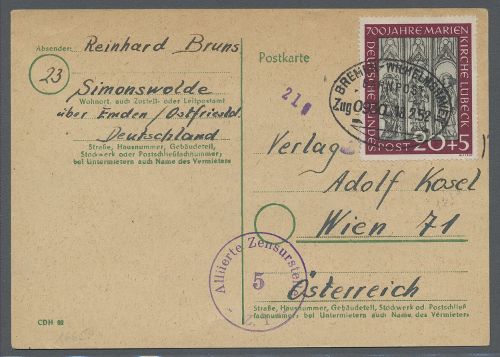 Absender: Reinhard Bruns
23
Simonswolde
Wohnort, auch Zustell- oder Leitpostamt
über Emden/Ostfriesld.
Deutschland
Straße, Hausnummer, Gebäudeteil,
Stockwerk oder Postschließfachnummer;
bei Untermietern auch Name des Vermieters
CDH 60
Postkarte
700 JAHRE MARIEN
KIRCHE LÜBECK
DEUTSCHE BUNDES
POST 20+5
BREMEN - WILHELMSHAVEN
BAHNPOST
Zug
Verlag
Adolf Kosel
Wien 71
Österreich
Alliierte Zensurstelle
5
Straße, Hausnummer, Gebäudeteil, Stockwerk od. Postschließ
fachnummer; bei Untermietern auch Name des Vermieters